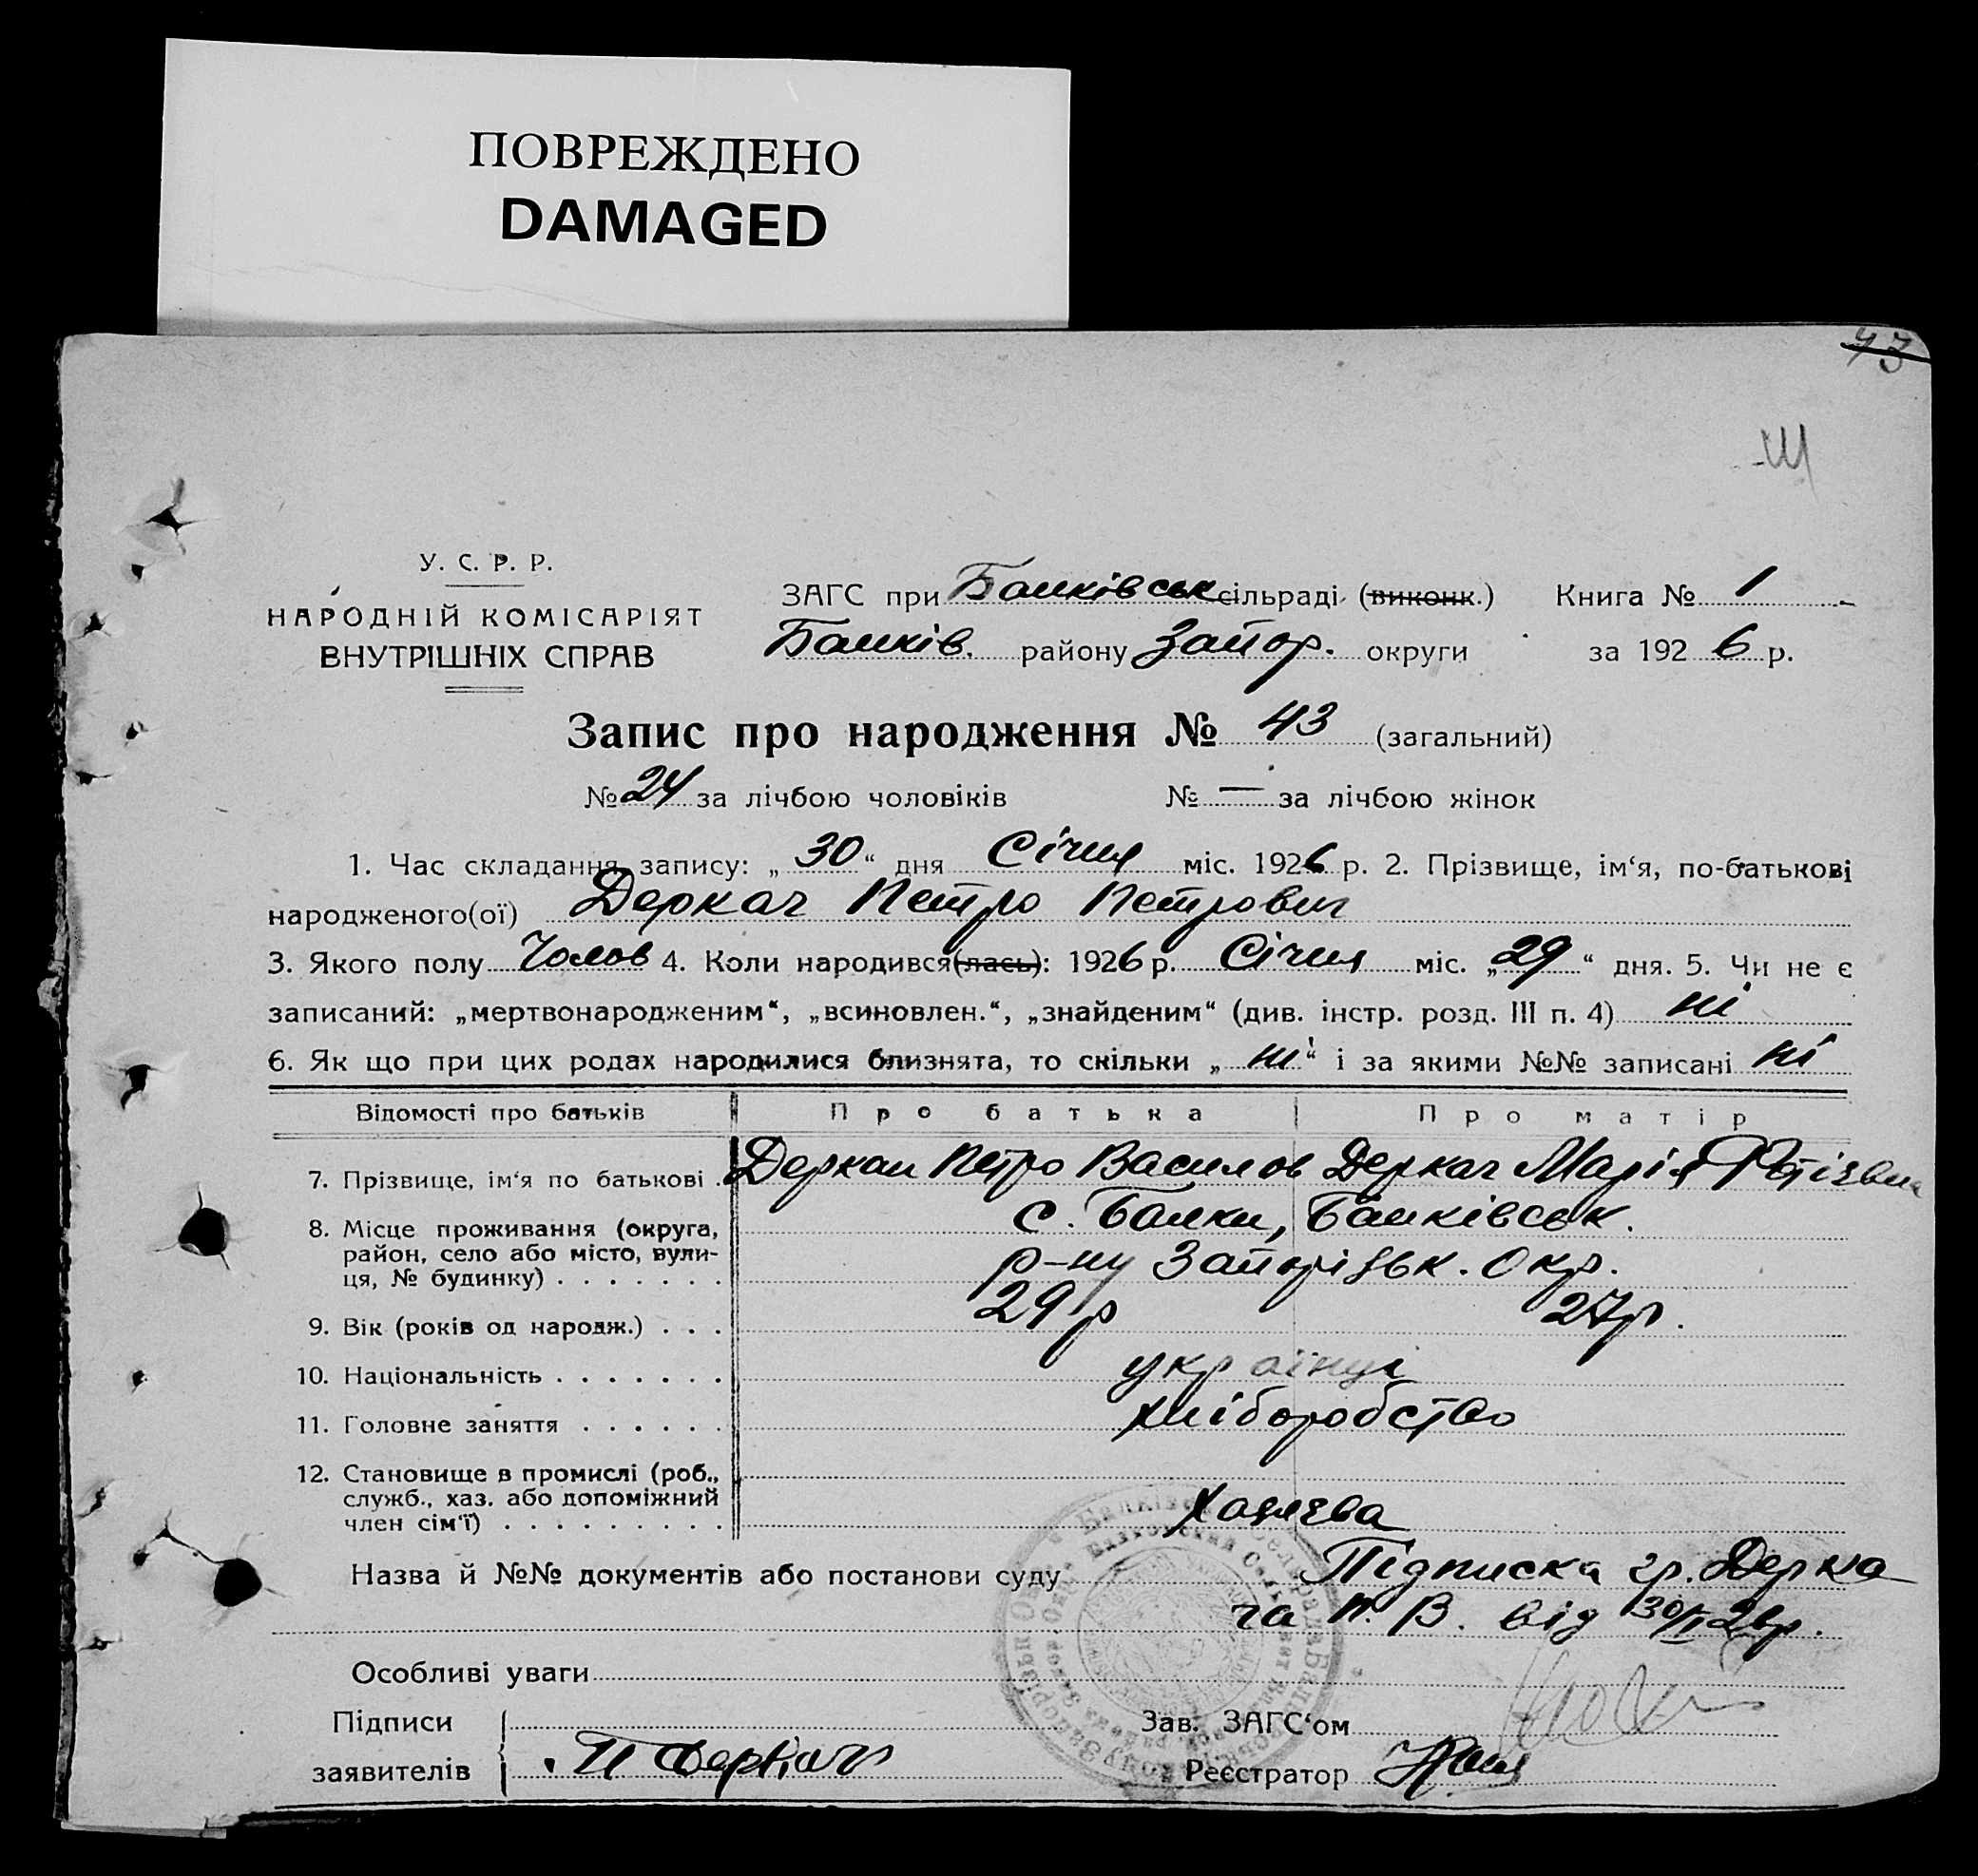 ПОВРЕЖДЕНО
DAMAGED
43
У. С. Р. Р.
НАРОДНІЙ КОМІСАРІЯТ
ВНУТРІШНІХ СПРАВ
ЗАГС при Балківськ сільраді (виконк.) Книга № 1
Балків. району Запор. округи за 1926 р.
Запис про народження № 43 (загальний)
№ 24 за лічбою чоловіків № — за лічбою жінок
1. Час складання запису: „30“ дня Січня міс. 1926 р. 2. Прізвище, ім‘я, по-батькові
народженого(ої) Деркач Петро Петрович
3. Якого полу Чолов 4. Коли народився(лась): 1926 р. Січня міс. „29“ дня. 5. Чи не є
записаний: „мертвонародженим“, „всиновлен.“, „знайденим“ (див. інстр. розд. III п. 4) ні
6. Як що при цих родах народилися близнята, то скільки „ні“ і за якими №№ записані ні
Відомості про батьків Про батька Про матір
7. Прізвище, ім‘я по батькові . Деркач Петро Василов Деркач Марія
8. Місце проживання (округа, район, село або місто, вули-ця, № будинку) . . . . . . . с. Балки, Балківськ.
р-ну Запорізьк. Окр.
9. Вік (років од народж.) . . . 29 р 27 р.
10. Національність . . . . . . . українці
11. Головне заняття . . . . . . хліборобство
12. Становище в промислі (роб., служб., хаз. або допоміжний член сім‘ї) . . . . . . . . .
Назва й №№ документів або постанови суду Підписка гр. Дерка
ча П. В. від 30/I 26р.
Особливі уваги
Підписи заявителів П Деркач
Зав. ЗАГС‘ом
Реєстратор